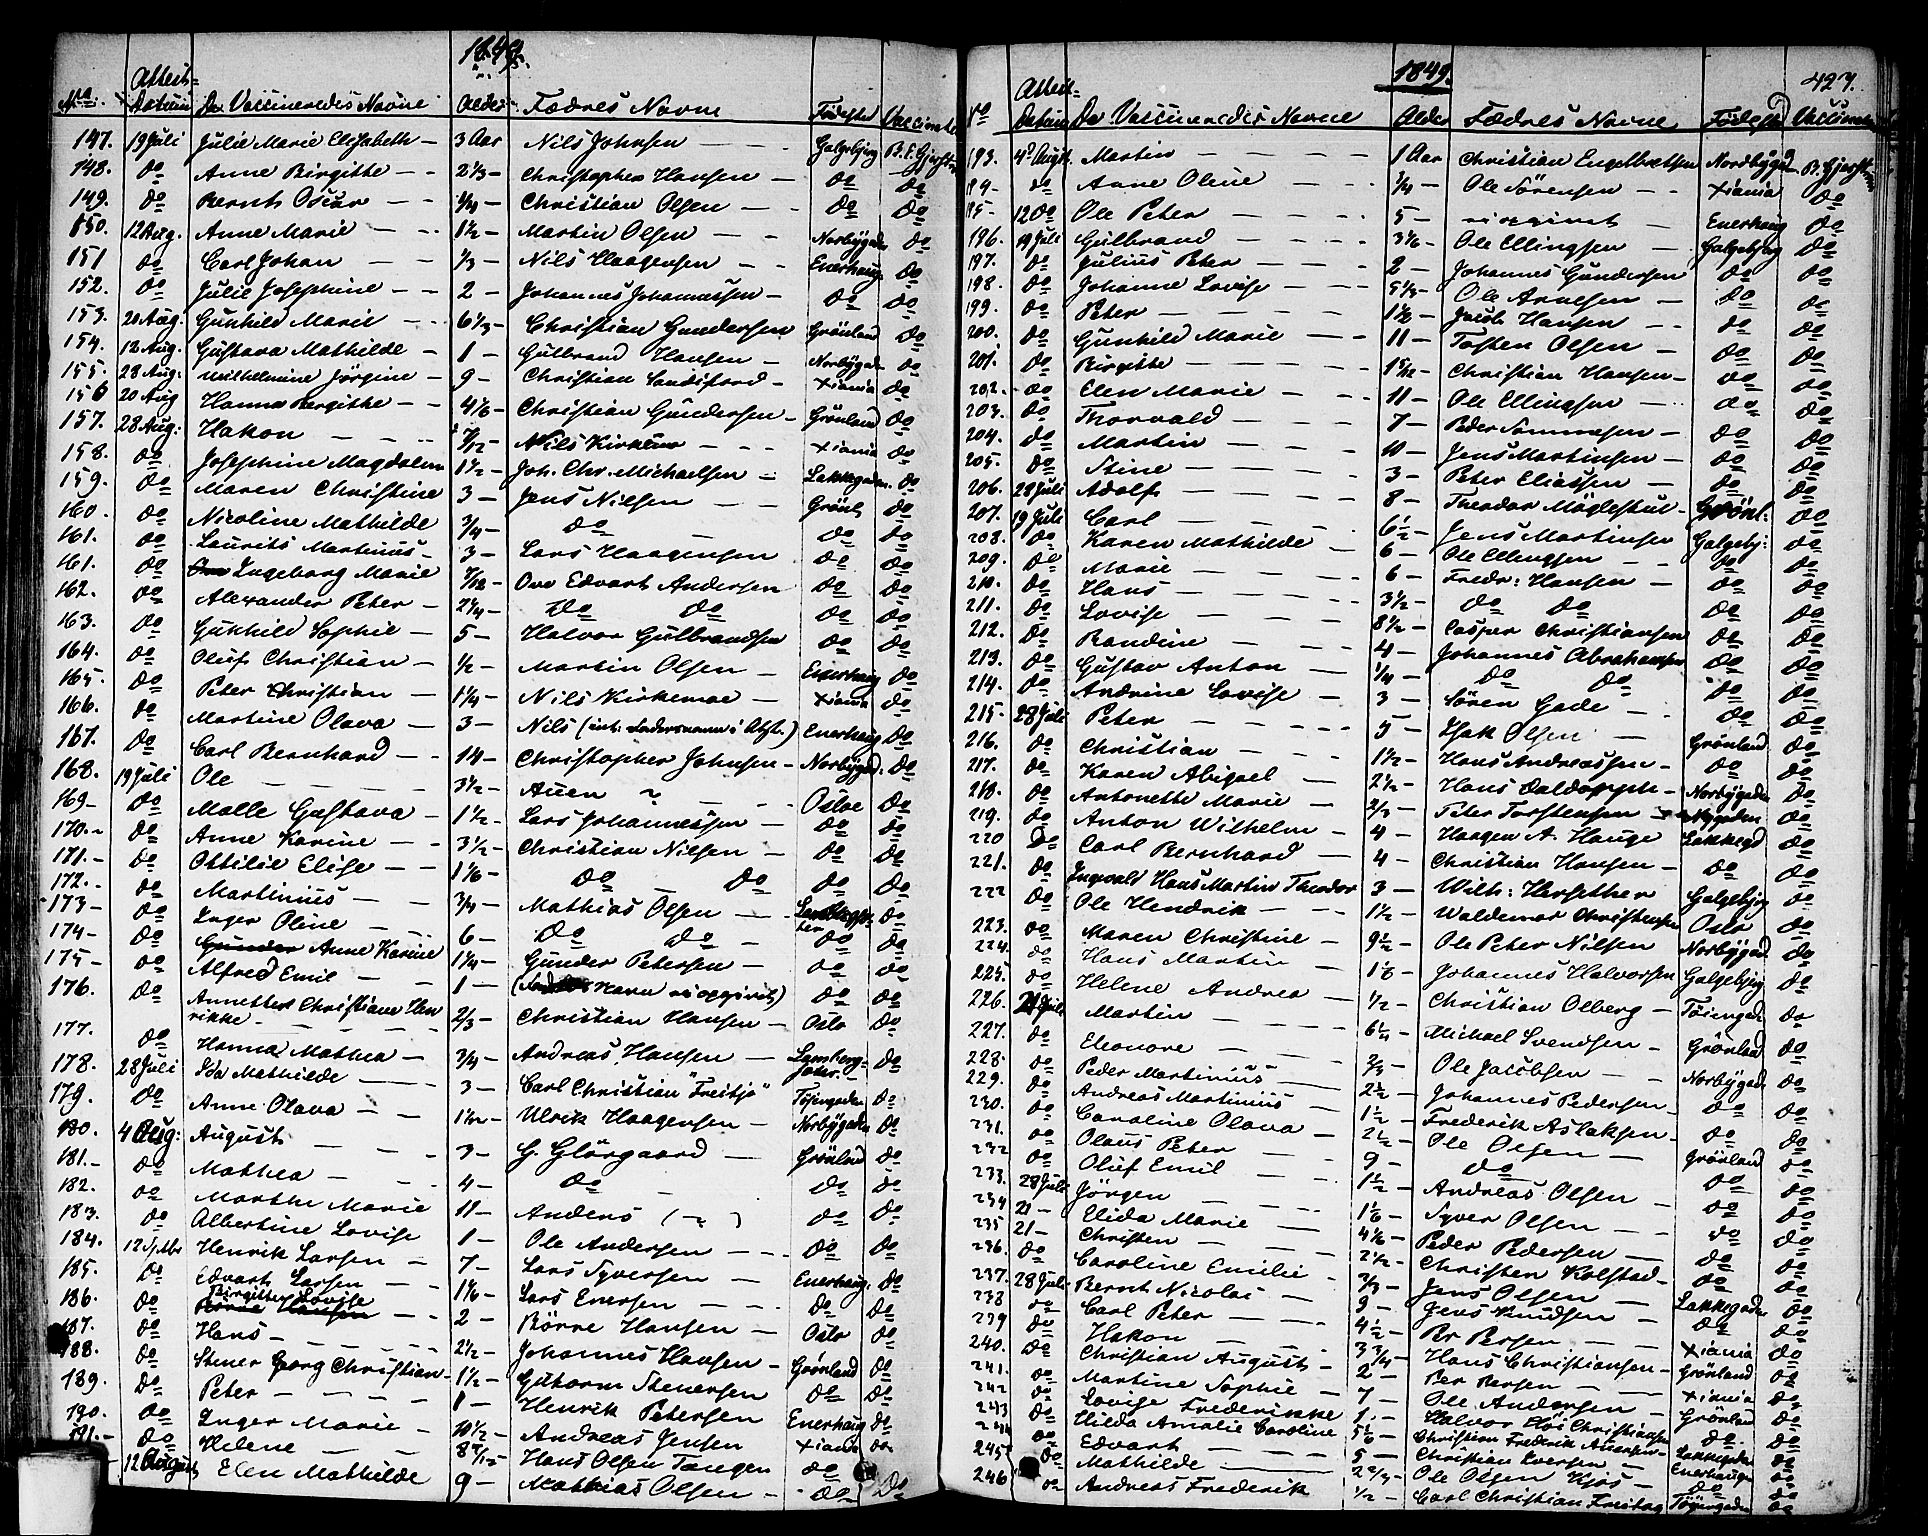 1849.
No. Attest-Datum De Vaccineredes Navne Alder Fædres Navne Fødested Vaccinateur
147. 19 Juli Julie Marie Elisabeth – 3 Aar Nils Johnsen – – Galgebjerg B. F. Gjerst
148. do Anne Birgitte – – 2 1/3 – Christopher Hansen – do do
149. do Bernt Oscar – – 3/4 – Christian Olsen – – do do
150. 12 Aug. Anne Marie – – 1 1/2 – Martin Olsen – – Norbygaden do
151 do Carl Johan – – 1/3 – Nils Haagensen – Enerhaug. do
152. do Julie Josephine – – 2 – Johannes Johannessen – do do
153. 20 Aug. Gunhild Marie – – 6 1/3 – Christian Gundersen Grönland do
154. 12 Aug. Gustava Mathilde – 1 – Gulbrand Hansen – Norbygaden do
155. 28 Aug. Wilhelmine Jörgine – 9 – Christian Sandsford – Xiania do
156 20 Aug Hanna Bergithe – – 4 1/6 – Christian Gundersen – Grönland do
157. 28 Aug: Hakon – – – 7/12 – Nils Kirkemo – – Xiania do
158. do Josephine Magdalena 1 1/2 – Joh. Chr. Michaelsen – Lakkegaden. do
159. do Maren Christine 3 – Jens Nilsen – – Grönl do
160. do Nicoline Mathilde 3/4 – do – do do
161. do Laurits Martinus – 3 – Lars Haagensen do do
161. do Ingeborg Marie 7/12 – Ove Edvart Andersen do do
162. do Alexander Peter – 2 1/4 – do do do do
163. do Gunhild Sophie – 5 – Halvor Gulbrandsen do do
164. do Oluf Christian – 1/2 – Martin Olsen – Enerhaug do
165. do Peter Christian – 1 1/4 – Nils Kirkemoe – Xiania do
166. do Martine Olava – 3 – Nils (int. Fadersnavn i Atst.) Enerhaug do
167. do Carl Bernhard – – 14 – Christopher Johnsen – Norbygad. do
168. 19 Juli Ole – – – 3 1/2 – Auen – – Osloe do
169 – do Malle Gustava – 1 1/2 – Lars Johannessen – do do
170. – do Anne Karine – 3 1/2 – Christian Nilsen – do do
171. – do Ottilie Elise – – 1 1/6 – do do do do
172. – do Martinius – – 3/4 – Mathias Olsen – – do
173 – do Inger Oline – – 6 – do do – do do
174 – do Anne Karine 1 1/4 – Gunder Petersen – do do
175 – do Alfred Emil – 1 – do do
176. do Annette Christiane Henrikke – 2/3 – Christian Hansen – Oslo do
177. do Hanna Mathea – 3/4 – Andreas Hansen – do
178. 28 Juli Ida Mathilde – 3 – Carl Christian "Freitjo" Töiengaden do
179. do Anne Olava – – 1 1/2 – Ulrik Haagensen – Norbygaden do
180. 4 Aug: August – – 3 – G. Glörgaard – Grönland do
181. – do Mathea – – – 4 – do – do do
182. do Marthe Marie 11 – Anders ( – ) do do
183. do Albertine Lovise 1 – Ole Andersen – – do do
184. 12 Sptbr Henrik Larsen – 7 – Lars Syversen – Enerhaug. do
185. do Edvart Larsen – 1 1/6 – Lars Enersen – – do do
186. do Birgitte Lovise – – 2 – Börre Hansen – Oslo do
187. do Hans – – – 2 1/2 – Johannes Hansen – Grönland do
188. do Stener Georg Christian – 1 1/2 – Guthorm Stenersen do do
189. do Peter – – – 1 – Henrik Petersen Enerhaug do
190. do Inger Marie – 10 1/2 – Andreas Jensen Xiania do
191. – do Helene – – 8 Hans Olsen Tangen do
12 August Elen Mathilde 9 – Mathias Olsen – do do
1849. 427.
No Attest-Datum De Vaccineredes Navne Alder Fædres Navne Fødested Vaccinateur
193. 4 Augst. Martin – – – 1 Aar Christian Engelbretsen Nordbygaden B. Gjerst
194 – do Anne Oline – – 3/4 – Ole Sörensen – – Xiania do
195 – 12 do Ole Peter – – – 5 – Enerhaug do
196. 19 Juli Gulbrand – – – 3 1/6 – Ole Ellingsen – Galgebjerg do
197. do Julius Peter – – 2 – Johannes Gundersen do do
198. do Johanne Lovise – – 5 1/3 – Ole Arnesen – do do
199. do Peter – – – Jacob Hansen – – do do
200. do Gunhild Marie – – 11 – Torsten Olsen – do do
201. do Birgitte – – – 1 5/12 – Christian Hansen – do do
202. – do Elen Marie – – 11 – Ole Ellingsen – do do
203. do Thorvald – – 7 – Peder Sommesen – do do
204. do Martin – – 10 – Jens Martinsen – do do
205. do Stine – – 3 – Peter Eliassen – do do
206. 28 Juli Adolf – – – 8 – Theodor Möglestul – Grönl: do
207. 19 Juli Carl – – – 6 1/2 – Jens Martinsen Galgebj: do
208. do Karen Mathilde – – 6 – Ole Ellingsen – do do
209. do Marie – – 6 – Fredr: Hansen – do do
210. do Hans – – – 3 1/2 – do do do do
211. do Lovise – – – 8 1/2 – Casper Christiansen do do
212. do Randine – – 4 – Johannes Abrahamsen do do
213. do Gustav Anton – – 1/4 – do do do do
214. do Andrine Lovise – 3 – Sören Gade – – do do
215 – 28 Juli Peter – – – 5 – Isak Olsen – Grönland do
216. do Christian – – – 1 1/2 – Hans Andreassen – do do
217. do Karen Abigael – 2 1/2 – Norbygaden do
218. do Antonette Marie – 2/3 – Peter Torstensen – Nygaden do
219. do Anton Wilhelm – 4 – Haagen A. Hauge Lakkegd do
220 do Carl Bernhard – 4 – Christian Hansen – do do
221. do Ingwald Hans Martin Theodor 3 – Wilh: Hersether Galgebjerg do
222 do Ole Hendrik – – 1 1/2 – Waldemar Christensen Oslo do
223. do Maren Christine – 9 1/2 – Ole Peter Nilsen Norbygad. do
224. do Hans Martin – 1 1/6 – Johannes Halvorsen Galgebjerg do
225. do Helene Andrea – 1/2 – Christian Olberg – Töiengad do
226. 21 Juli Martin – – 6 1/4 – Michael Svendsen – Grönland do
227. do Eleonore – – – 2/3 – Ole Jacobsen – – Norbygad. do
228. do Peder Martinius – – 2 1/2 – Johannes Pedersen – do do
229. do Andreas Martinius – – 1 1/2 – Frederik Aslaksen – do do
230. do Caroline Olava – 2 1/2 – Ole Olsen – Grönland do
231. do Olaus Peter – – 9 – do do do
232 do Oluf Emil – – 1 1/2 – Andreas Olsen – do do
233. 28 Juli Jörgen – – – 1 1/6 – Syver Olsen – – do do
234 21 – Elida Marie – – 4 1/6 – Peder Pedersen – do do
235 21 – Christen – – – 2 1/2 – Christen Kolstad – do do
236. do Caroline Emilie – 2/3 – Jens Olsen – Lakkegaden do
237. 28 Juli Bernt Nicolai – – 9 – Jens Knudsen – do do
238 do Carl Peter – – 4 1/2 – Br Bersen – Xiania do
239 do Hakon – – – 3 3/4 – Hans Christiansen – Grönland do
240. do Christian August – 2 – Ber Bersen – Xiania do
241. do Martine Sophie – 7 – Ole Andersen – Grönland do
242 do Lovise Frederikke 1 – Halvor Christiansen do. do
243 do Hilda Amalie Caroline 5 1/6 – Christian Frederik – Lakkegaden do
244 do Edvart – – 5 – Christian Iversen – Enerhaugen do
245 do Mathilde – – 2 2/3 – Ole Olsen Kjös – do
246 do Andreas Frederik 1/2 – Carl Christian Freitag Töiengaden do